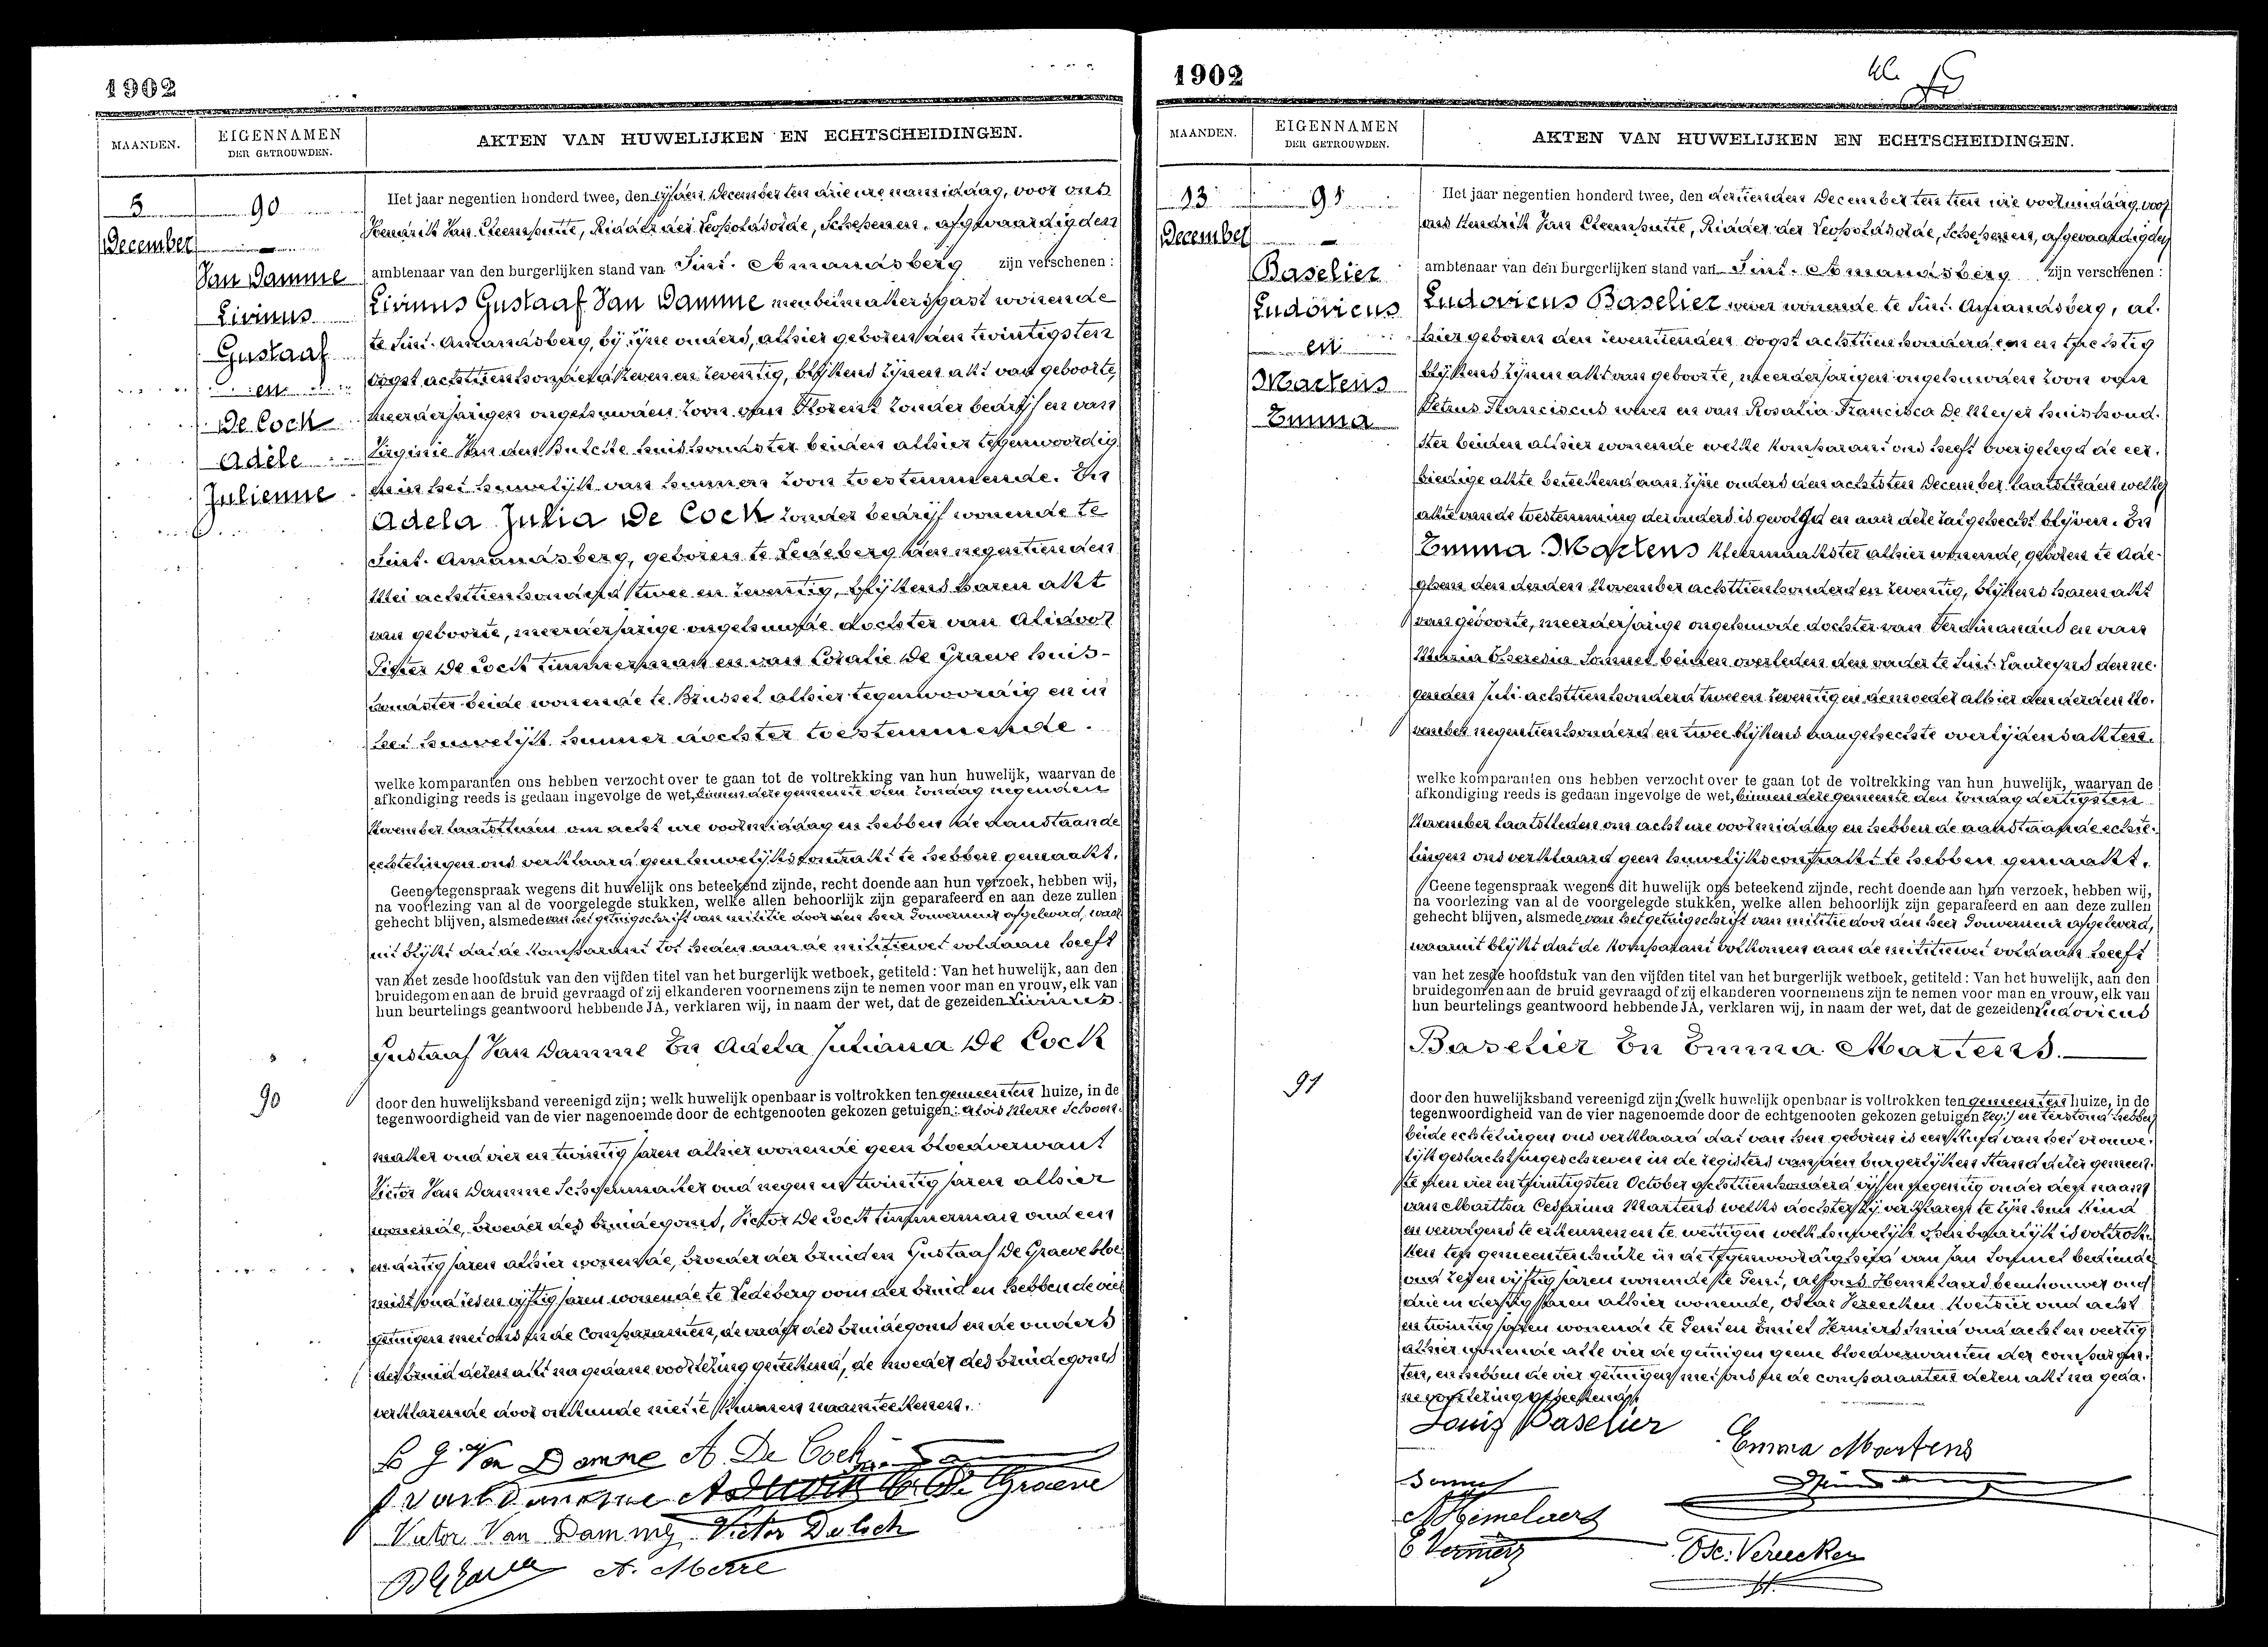 1902
MAANDEN.
EIGENNAMEN
DER GETROUWDEN.
AKTEN VAN HUWELIJKEN EN ECHTSCHEIDINGEN.
5
December
90
Van Damme
Livinus
Gustaaf
en
De Cock
Adèle
Julienne
Het jaar negentien honderd twee, den vijfden December ten drie ure namiddag, voor ons
Hendrik Van Cleemputte, Ridder der Leopoldsorde, Schepenen, afgevaardigden
ambtenaar van den burgerlijken stand van Sint-Amandsberg zijn verschenen:
Livinus Gustaaf Van Damme meubelmakersgast wonende
te Sint-Amandsberg, bij zijne ouders, alhier geboren den twintigsten
oogst achttienhonderd zeven en zeventig, blijkens zijnen akt van geboorte,
meerderjarigen ongehuwden zoon van Florent zonder bedrijf en van
Virginie Van den Bulcke huishoudster beiden alhier tegenwoordig
en in het huwelijk van hunnen zoon toestemmende. En
Adela Julia De Cock zonder bedrijf wonende te
Sint-Amandsberg, geboren te Ledeberg den negentienden
Mei achttienhonderd twee en zeventig, blijkens haren akt
van geboorte, meerderjarige ongehuwde dochter van Alidoor
Pieter De Cock timmerman en van Coralie De Graeve huis-
houdster beide wonende te Brussel alhier tegenwoordig en in
het huwelijk hunner dochter toestemmende.
welke komparanten ons hebben verzocht over te gaan tot de voltrekking van hun huwelijk, waarvan de
afkondiging reeds is gedaan ingevolge de wet, binnen deze gemeente den zondag negenden
November laatstleden om acht ure voormiddag en hebben de aanstaande
echtelingen ons verklaard geen huwelijkscontrakt te hebben gemaakt.
Geene tegenspraak wegens dit huwelijk ons beteekend zijnde, recht doende aan hun verzoek, hebben wij,
na voorlezing van al de voorgelegde stukken, welke allen behoorlijk zijn geparafeerd en aan deze zullen
gehecht blijven, alsmede van het getuigschrift van militie door den heer Gouverneur afgeleverd, waar
uit blijkt dat de komparant tot heden aan de militiewet voldaan heeft
van het zesde hoofdstuk van den vijfden titel van het burgerlijk wetboek, getiteld: Van het huwelijk, aan den
bruidegom en aan de bruid gevraagd of zij elkanderen voornemens zijn te nemen voor man en vrouw, elk van
hun beurtelings geantwoord hebbende JA, verklaren wij, in naam der wet, dat de gezeiden Livinus
Gustaaf Van Damme En Adela Juliana De Cock
90
door den huwelijksband vereenigd zijn; welk huwelijk openbaar is voltrokken ten gemeenten huize, in de
tegenwoordigheid van de vier nagenoemde door de echtgenooten gekozen getuigen: Aloïs Merre Schoen-
maker oud vier en twintig jaren alhier wonende geen bloedverwant
Victor Van Damme Schoenmaker oud negen en twintig jaren alhier
wonende, broeder des bruidegoms, Victor De Cock timmerman oud een
en dertig jaren alhier wonende, broeder der bruiden Gustaaf De Graeve bloe-
mist oud zes en vijftig jaren wonende te Ledeberg oom der bruid en hebben de vier
getuigen met ons en de Comparanten, de vader des bruidegoms en de ouders
der bruid dezen akt na gedane voorlezing geteekend, de moeder des bruidegoms
verklarende door onkunde niet te kunnen naamteekenen.
L G Van Damme A De Cock
F van Damme A De Cock C. De Graeve
Victor Van Damme Victor De Cock
A. Merre
1902
MAANDEN.
EIGENNAMEN
DER GETROUWDEN.
AKTEN VAN HUWELIJKEN EN ECHTSCHEIDINGEN.
13
December
91
Baselier
Ludovicus
en
Martens
Emma
Het jaar negentien honderd twee, den dertienden December ten tien ure voormiddag, voor
ons Hendrik Van Cleemputte, Ridder der Leopoldsorde, Schepenen, afgevaardigden
ambtenaar van den burgerlijken stand van Sint-Amandsberg zijn verschenen:
Ludovicus Baselier wever wonende te Sint-Amandsberg, al-
hier geboren den zeventienden oogst achttienhonderd een en tachtig
blijkens zijnen akt van geboorte, meerderjarigen ongehuwden zoon van
Petrus Franciscus wever en van Rosalia Francisca De Meyer huishoud-
ster beiden alhier wonende welke komparant ons heeft overgelegd de eer-
biedige akte beteekend aan zijne ouders den achtsten December laatstleden welke
akte van de toestemming der ouders is gevolgd en aan deze zal gehecht blijven. En
Emma Martens kleermaakster alhier wonende, geboren te Ade-
ghem den derden November achttienhonderd en zeventig, blijkens haren akt
van geboorte, meerderjarige ongehuwde dochter van Ferdinandus en van
Maria Theresia Sonnet beiden overleden den vader te Sint-Laureyns den ne-
genden Juli achttienhonderd twee en zeventig en de moeder alhier den derden No-
vember negentienhonderd en twee blijkens aangehechte overlijdensakten.
welke komparanten ons hebben verzocht over te gaan tot de voltrekking van hun huwelijk, waarvan de
afkondiging reeds is gedaan ingevolge de wet, binnen deze gemeente den zondag dertigsten
November laatstleden om acht ure voormiddag en hebben de aanstaande echte-
lingen ons verklaard geen huwelijkscontrakt te hebben gemaakt.
Geene tegenspraak wegens dit huwelijk ons beteekend zijnde, recht doende aan hun verzoek, hebben wij,
na voorlezing van al de voorgelegde stukken, welke allen behoorlijk zijn geparafeerd en aan deze zullen
gehecht blijven, alsmede van het getuigschrift van militie door den heer Gouverneur afgeleverd,
waaruit blijkt dat de komparant volkomen aan de militiewet voldaan heeft
van het zesde hoofdstuk van den vijfden titel van het burgerlijk wetboek, getiteld: Van het huwelijk, aan den
bruidegom en aan de bruid gevraagd of zij elkanderen voornemens zijn te nemen voor man en vrouw, elk van
hun beurtelings geantwoord hebbende JA, verklaren wij, in naam der wet, dat de gezeiden Ludovicus
Baselier En Emma Martens.
91
door den huwelijksband vereenigd zijn; (welk huwelijk openbaar is voltrokken ten gemeenten huize, in de
tegenwoordigheid van de vier nagenoemde door de echtgenooten gekozen getuigen en terstond hebben
beide echtelingen ons verklaard dat van hen geboren is een kind van het vrouwe-
lijk geslacht ingeschreven in de registers van den burgerlijken stand dezer gemeen-
te den vier en twintigsten October achttienhonderd vijf en negentig onder den naam
van Martha Cesarina Martens welke dochter zij verklaren te zijn hun kind
en vervolgens te erkennen en te wettigen welk huwelijk openbaarlijk is voltrok-
ken ten gemeentenhuize in de tegenwoordigheid van Jan Sonnet bediende
oud zes en vijftig jaren wonende te Gent, Alfons Hemelaers beenhouwer oud
drie en dertig jaren alhier wonende, Oskar Vereecken koetsier oud acht
en twintig jaren wonende te Gent en Emiel Verniers smid oud acht en veertig
alhier wonende alle vier de getuigen geene bloedverwanten der comparan-
ten, en hebben de vier getuigen met ons en de comparanten dezen akt na geda-
ne voorlezing geteekend.
Louis Baselier
Emma Martens
Sonnet
A Hemelaers
E Verniers
Osc. Vereecken